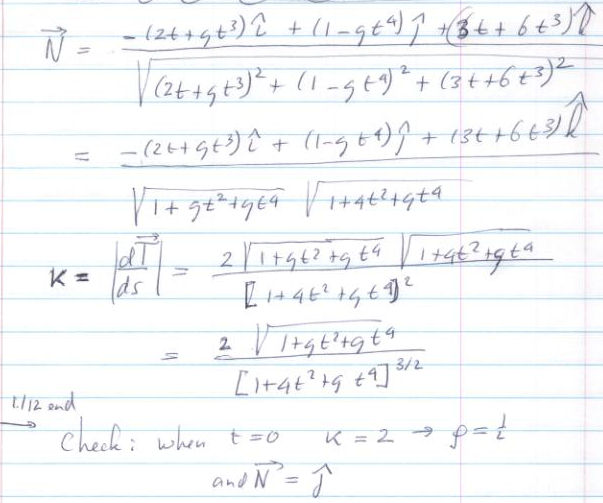 N⃗ = -(2t+9t³)î + (1-9t⁴)ĵ + (3t+6t³)k̂ / √((2t+9t³)² + (1-9t⁴)² + (3t+6t³)²)
= -(2t+9t³)î + (1-9t⁴)ĵ + (3t+6t³)k̂ / √(1+9t²+9t⁴) √(1+4t²+9t⁴)
K = |dT⃗/ds| = 2√(1+9t²+9t⁴) √(1+4t²+9t⁴) / [1+4t²+9t⁴]²
= 2√(1+9t²+9t⁴) / [1+4t²+9t⁴]^3/2
1.1/12 end
→ Check: when t=0 K=2 → ρ=½
and N⃗ = ĵ